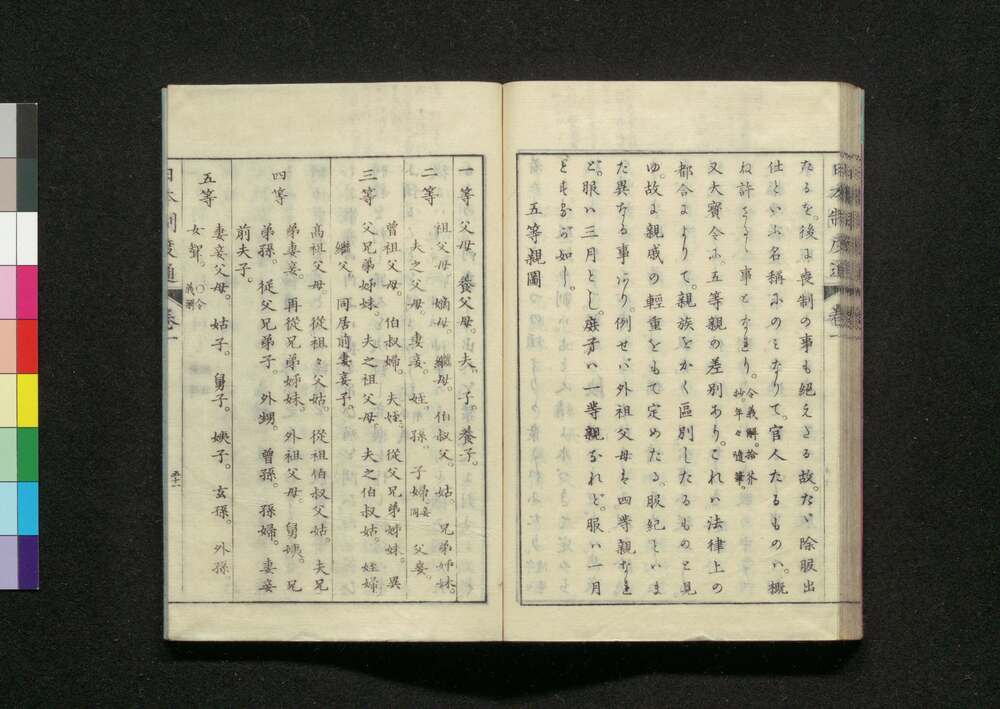 たるを。後は喪制の事も絶えたる故。たゞ除服出
仕といふ名稱のみのこりて。官人たるものハ。概
ね許さるゝ事となれり。令義解。拾芥抄。年々隨筆。
又大寶令に五等親の差別あり。これハ法律上の
都合によりて。親族をかく區別したるものと見
ゆ。故に親戚の輕重をもて定めたる。服紀といま
た異なる事あり。例せバ外祖父母を四等親なれ
ど。服ハ三月とし。庶子ハ一等親なれど。服ハ一月
とするが如し。
五等親圖
日本制度通 卷一
一等 父母。養父母。夫。子。養子。
二等 祖父母。嫡母。繼母。伯叔父。姑。兄弟姉妹。
夫之父母。妻妾。姪。孫。子婦。妾同 父妾。
三等 曾祖父母。伯叔婦。夫姪。從父兄弟姉妹。異
父兄弟姉妹。夫之祖父母。夫之伯叔姑。姪婦
繼父。同居前妻妾子。
四等 高祖父母。從祖々父姑。從祖伯叔父姑。夫兄
弟妻妾。再從兄弟姉妹。外祖父母。舅姨。兄
弟孫。從父兄弟子。外甥。曾孫。孫婦。妻妾
前夫子。
五等 妻妾父母。姑子。舅子。姨子。玄孫。外孫
女聟。○令義解
日本制度通 卷一 五十一